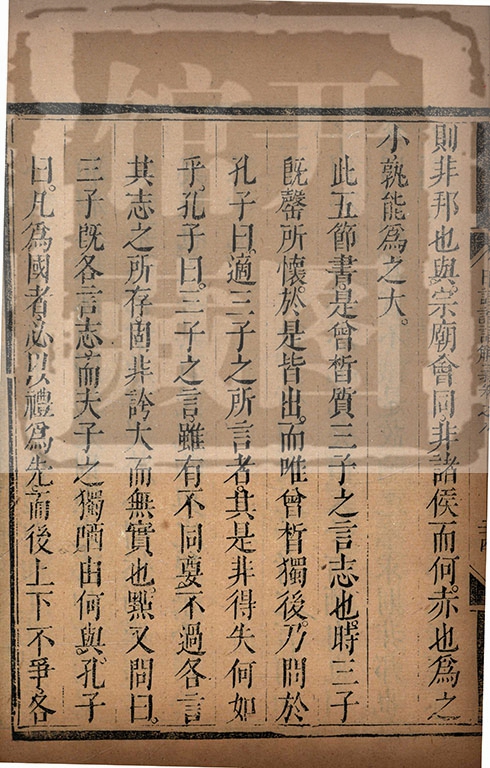 則非邦也與宗廟會同非諸侯而何赤也為之
小孰能為之大
此五節書是曾晳質三子之言志也時三子
既罄所懷於是皆出而唯曾晳獨後乃問於
孔子曰適三子之所言者其是非得失何如
乎孔子曰三子之言雖有不同要不過各言
其志之所存固非誇大而無實也點又問曰
三子既各言志而夫子之獨哂由何與孔子
曰凡為國者必以禮為先而後上下不爭各